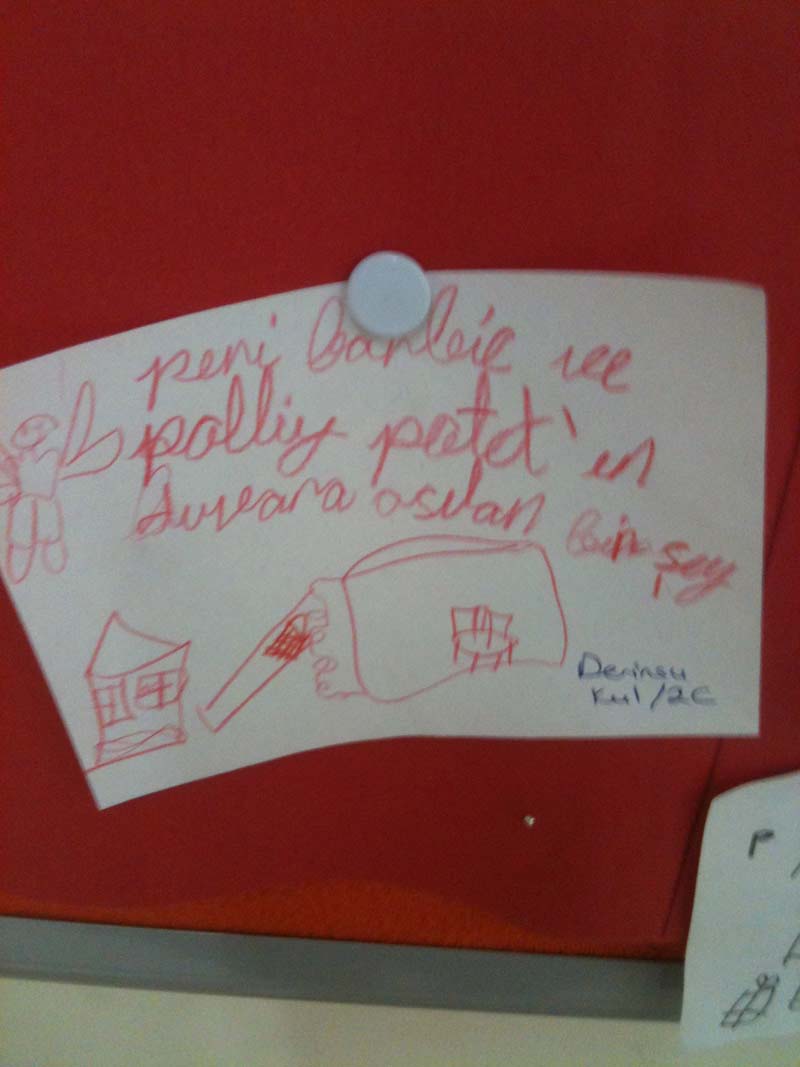 peni barbie ve
polliy poket'in
duvara asılan bir şey
Derinsu
Kul/2C
P